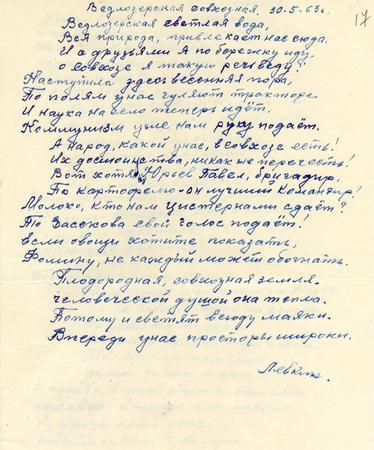 Ведлозерская совхозная, 30.5.63г.
17
Ведлозерская светлая вода,
Вся природа, привлекает нас сюда.
И с друзьями я по бережку иду,
о совхозе я такую речь веду!
Наступила здесь весенняя пора,
По полям у нас гуляют трактора
И наука на село теперь идёт.
Коммунизм уже нам руку подаёт.
А народ, какой у нас, в совхозе есть!
Их достоинства, никак не перечесть!
Вот хотя Юрьев Павел, бригадир,
По картофелю он лучший командир!
Молоко, кто нам цистернами сдаёт?
То Засекова свой голос подаёт!
Если овощи хотите показать,
Фомину, не каждый может обогнать.
Плодородная, совхозная земля.
человеческой душой она тепла.
Потому и светят всюду маяки.
Впереди у нас просторы широки.